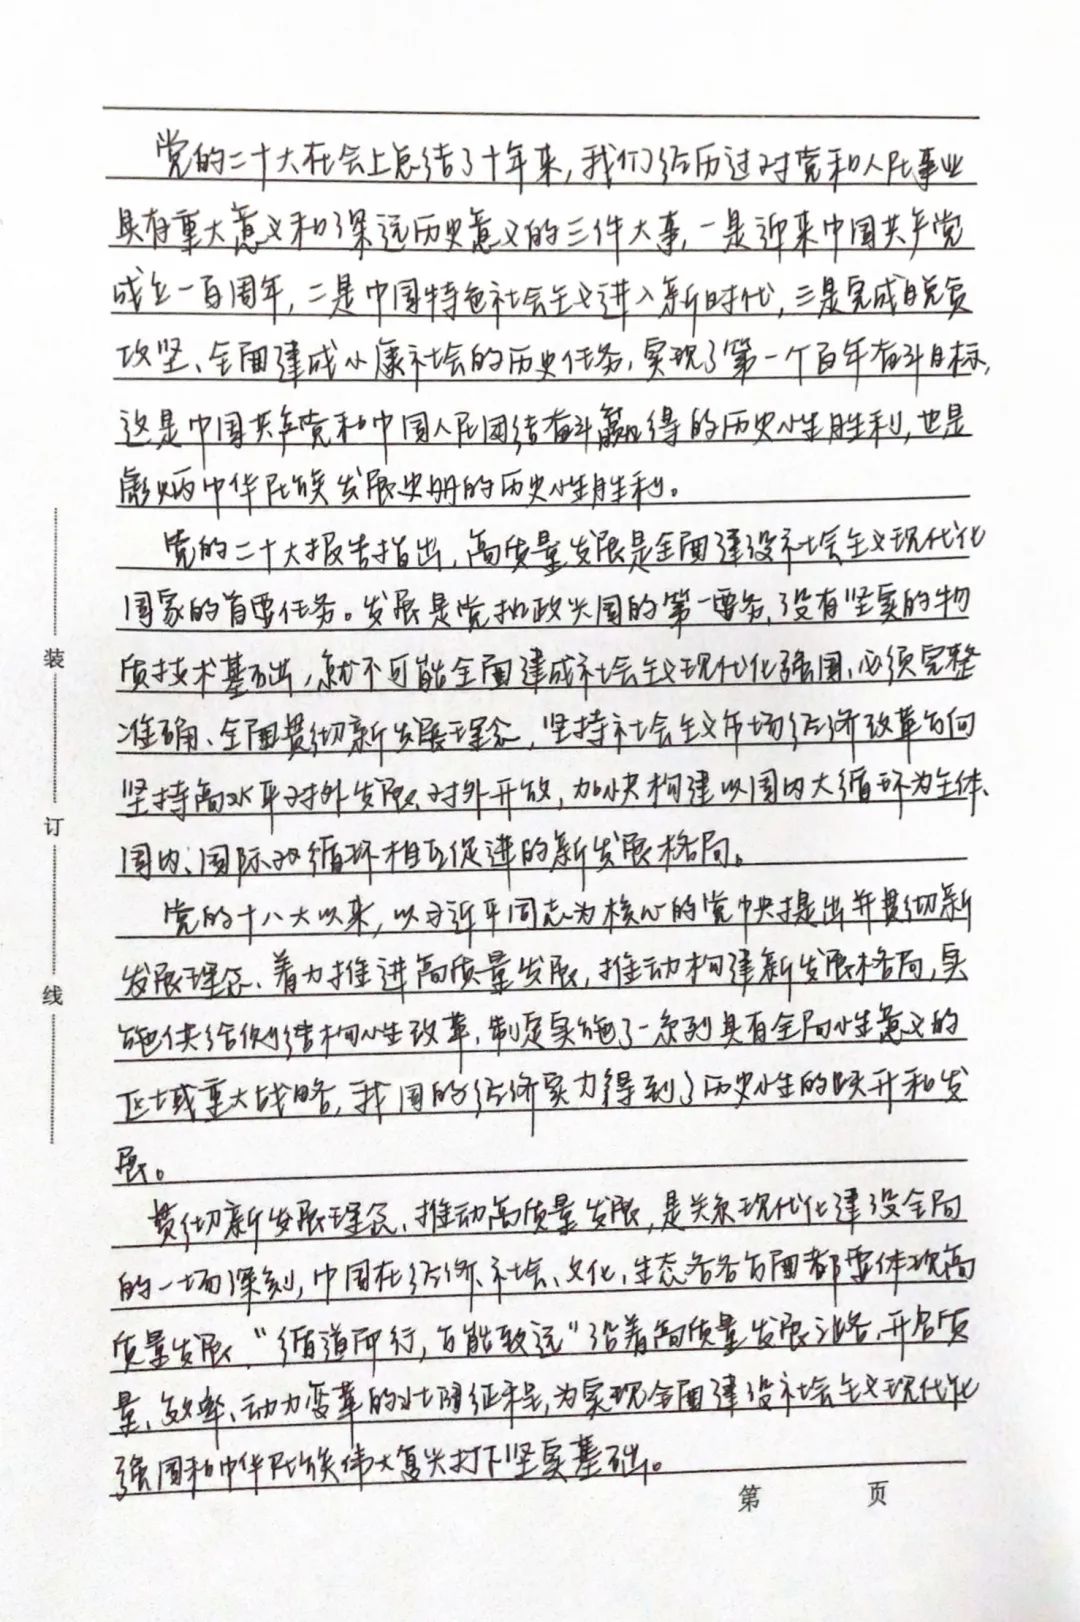 党的二十大在会上总结了十年来,我们经历过对党和人民事业
具有重大意义和深远历史意义的三件大事,一是迎来中国共产党
成立一百周年,二是中国特色社会主义进入新时代,三是完成脱贫
攻坚、全面建成小康社会的历史任务,实现了第一个百年奋斗目标,
这是中国共产党和中国人民团结奋斗赢得的历史性胜利,也是
彪炳中华民族发展史册的历史性胜利。
党的二十大报告指出,高质量发展是全面建设社会主义现代化
国家的首要任务。发展是党执政兴国的第一要务,没有坚实的物
质技术基础,就不可能全面建成社会主义现代化强国、必须完整
准确、全面贯彻新发展理念,坚持社会主义市场经济改革方向
坚持高水平对外发展、对外开放,加快构建以国内大循环为主体、
国内、国际双循环相互促进的新发展格局。
党的十八大以来,以习近平同志为核心的党中央提出并贯彻新
发展理念、着力推进高质量发展,推动构建新发展格局,实
施供给侧结构性改革,制定实施了一系列具有全局性意义的
区域重大战略,我国的经济实力得到了历史性的跃升和发
展。
贯彻新发展理念、推动高质量发展,是关系现代化建设全局
的一场深刻,中国在经济、社会、文化、生态各各方面都要体现高
质量发展,“循道而行,方能致远”沿着高质量发展之路,开启质
量、效率、动力变革的壮阔征程,为实现全面建设社会主义现代化
强国和中华民族伟大复兴打下坚实基础。
装
订
线
第 页